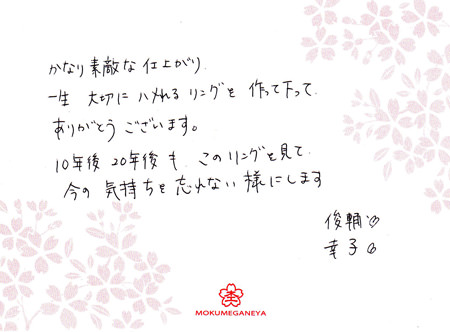 かなり素敵な仕上がり
一生 大切に ハメれる リングを 作って下って
ありがとう ございます。
10年後 20年後も このリングを見て
今の 気持ちを忘れない 様にします
俊輔
幸子
MOKUMEGANEYA